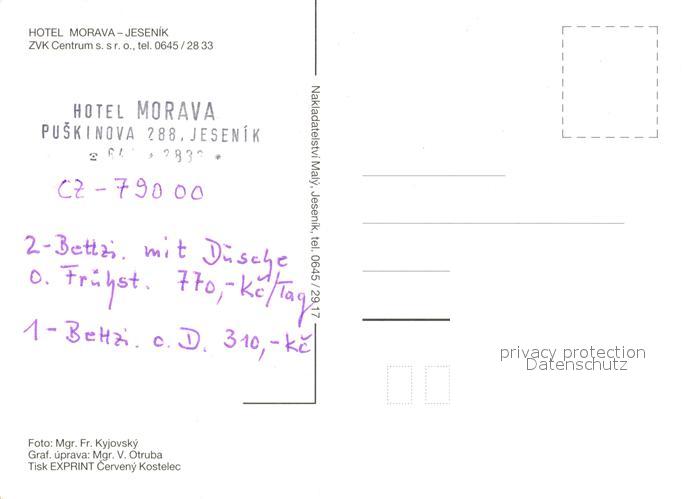 HOTEL MORAVA – JESENÍK
ZVK Centrum s. s r. o., tel. 0645 / 28 33
HOTEL MORAVA
PUŠKINOVA 288, JESENÍK
CZ - 790 00
2-Bettzi. mit Dusche
o. Frühst. 770,- Kč/Tag
1-Bettzi. o. D. 310,- Kč
Foto: Mgr. Fr. Kyjovský
Graf. úprava: Mgr. V. Otruba
Tisk EXPRINT Červený Kostelec
Nakladatelství Malý, Jeseník, tel. 0645 / 29 17
privacy protection
Datenschutz